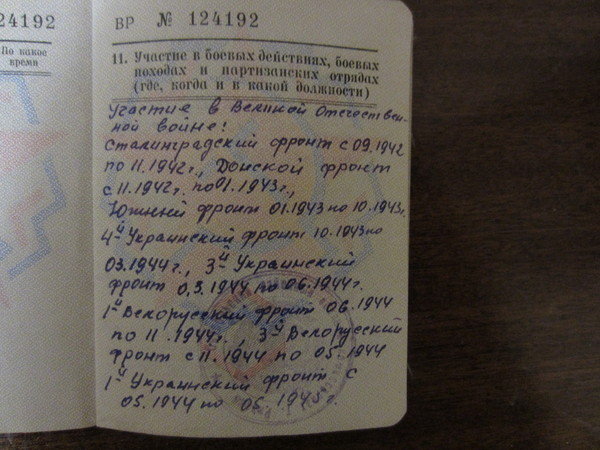 24192
По какое
время
ВР № 124192
11. Участие в боевых действиях, боевых
походах и партизанских отрядах
(где, когда и в какой должности)
Участие в Великой Отечествен-
ной войне:
Сталинградский фронт с 09.1942
по 11.1942г., Донской фронт
с 11.1942г. по 01.1943г.,
Южный фронт 01.1943 по 10.1943г.
4-й Украинский фронт 10.1943 по
03.1944г., 3-й Украинский
фронт 03.1944 по 06.1944г.
1-й Белорусский фронт 06.1944
по 11.1944г., 3-й Белорусский
фронт с 11.1944 по 05.1944
1-й Украинский фронт с
05.1944 по 06.1945г.